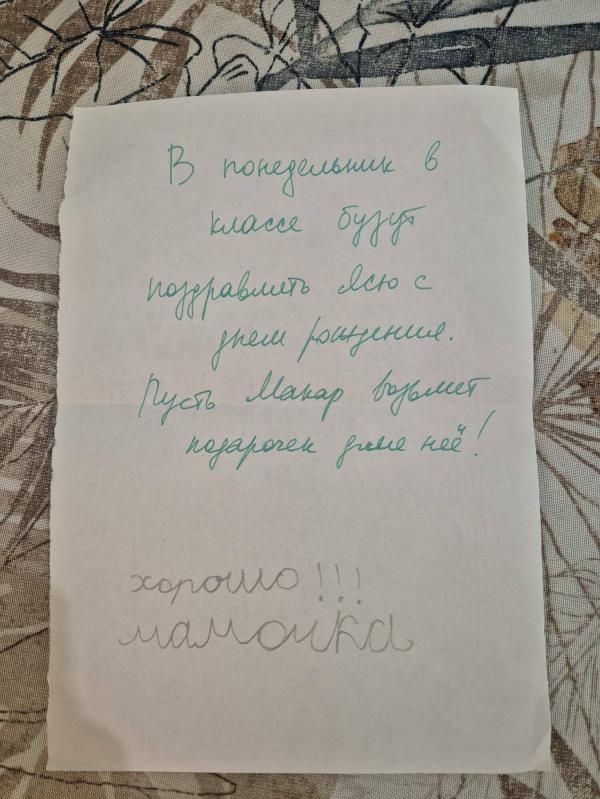 В понедельник в
классе будут
поздравлять Ясю с
днем рождения.
Пусть Макар возьмет
подарочек для неё!
хорошо!!!
мамочка